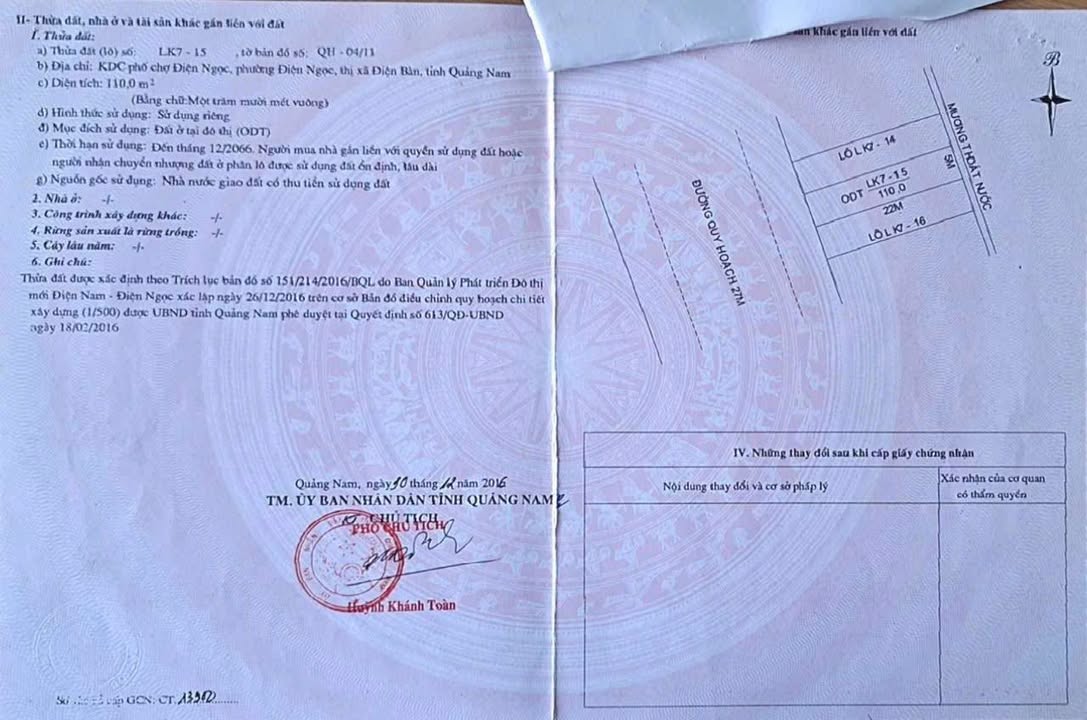 II- Thửa đất, nhà ở và tài sản khác gắn liền với đất
1. Thửa đất:
a) Thửa đất (lô) số: LK7 - 15 , tờ bản đồ số: QH - 04/11
b) Địa chỉ: KDC phố chợ Điện Ngọc, phường Điện Ngọc, thị xã Điện Bàn, tỉnh Quảng Nam
c) Diện tích: 110,0 m²
(Bằng chữ: Một trăm mười mét vuông)
d) Hình thức sử dụng: Sử dụng riêng
đ) Mục đích sử dụng: Đất ở tại đô thị (ODT)
e) Thời hạn sử dụng: Đến tháng 12/2066. Người mua nhà gắn liền với quyền sử dụng đất hoặc
người nhận chuyển nhượng đất ở phân lô được sử dụng đất ổn định, lâu dài
g) Nguồn gốc sử dụng: Nhà nước giao đất có thu tiền sử dụng đất
2. Nhà ở: -/-
3. Công trình xây dựng khác: -/-
4. Rừng sản xuất là rừng trồng: -/-
5. Cây lâu năm: -/-
6. Ghi chú:
Thửa đất được xác định theo Trích lục bản đồ số 151/214/2016/BQL do Ban Quản lý Phát triển Đô thị
mới Điện Nam - Điện Ngọc xác lập ngày 26/12/2016 trên cơ sở Bản đồ điều chỉnh quy hoạch chi tiết
xây dựng (1/500) được UBND tỉnh Quảng Nam phê duyệt tại Quyết định số 613/QĐ-UBND
ngày 18/02/2016
Quảng Nam, ngày 30 tháng 12 năm 2016
TM. ỦY BAN NHÂN DÂN TỈNH QUẢNG NAM
CHỦ TỊCH
PHÓ CHỦ TỊCH
Huỳnh Khánh Toàn
cấp GCN: CT.
khác gắn liền với đất
B
LÔ LK7 - 14
ODT LK7 - 15
110,0
22M
LÔ LK7 - 16
5M
MƯƠNG THOÁT NƯỚC
ĐƯỜNG QUY HOẠCH 27M
IV. Những thay đổi sau khi cấp giấy chứng nhận
Nội dung thay đổi và cơ sở pháp lý
Xác nhận của cơ quan
có thẩm quyền